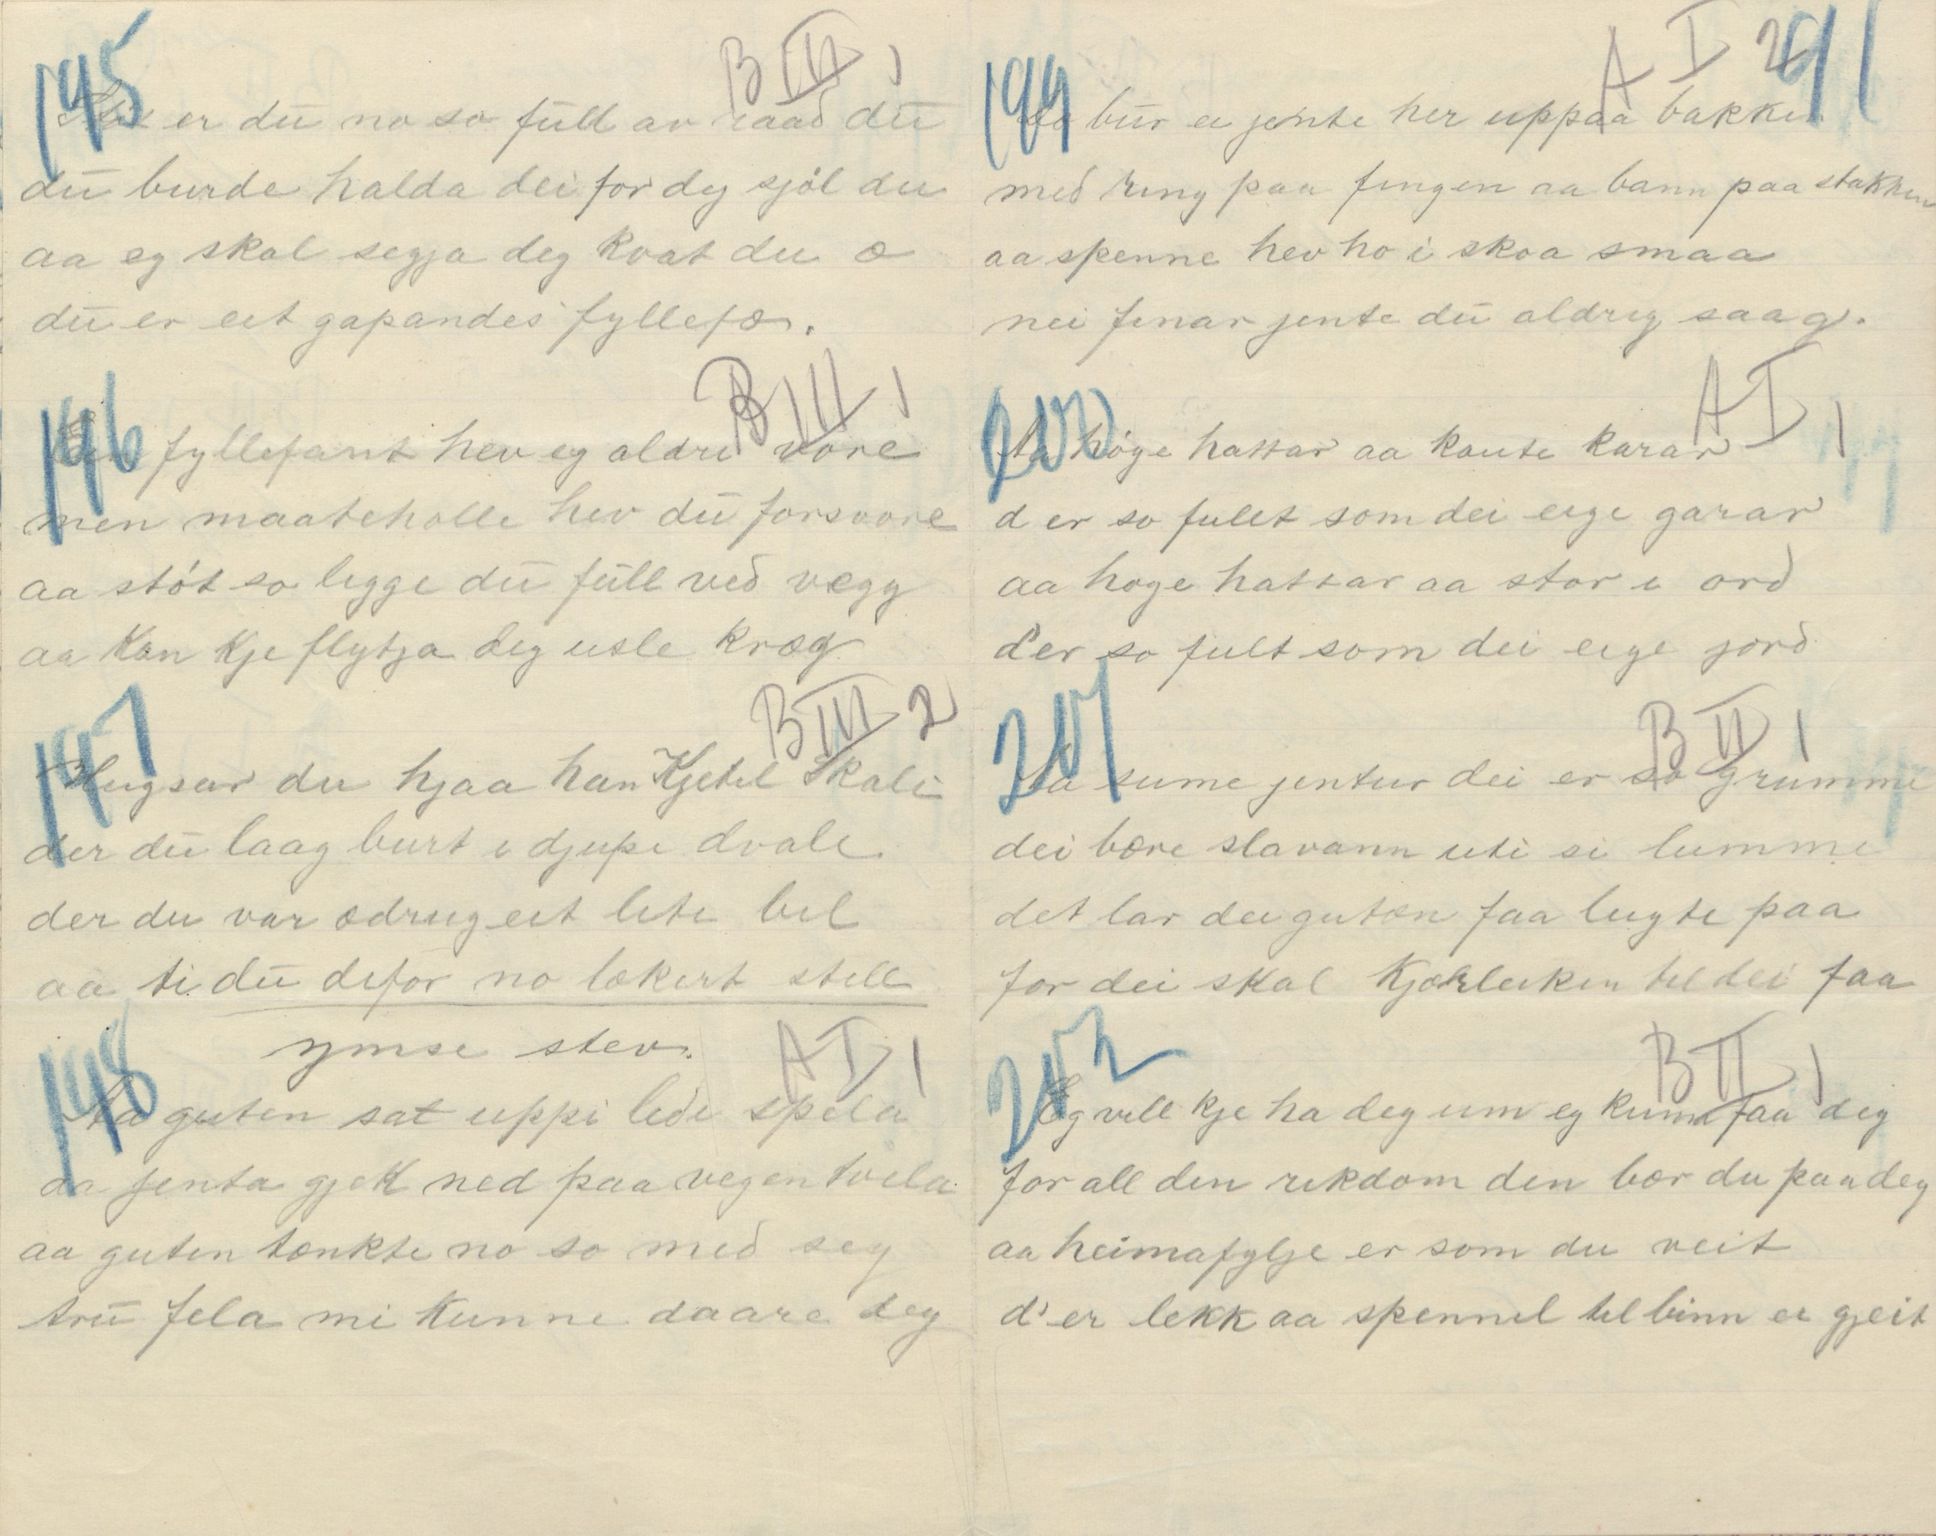 195
B III 1
er du no so full av raad du
du burde halda dei for deg sjøl du
aa eg skal segja deg kvat du æ
du er eit gapandes fyllefæ.
196
B III 1
fyllefant hev eg aldri vore
men maateholle hev du forsvore
aa støt so ligge du full ved vegg
aa kan kje flytja deg usle kræg
197
B III 2
Hugsar du hjaa han Kjetel Skali
der du laag burt i djupe dvale
der du var ædrug eit lite bel
aa ti du defor no lækert stell
ymse stev.
198
A I 1
Aa guten sat uppi lide spela
aa jenta gjek ned paa vegen tvela
aa guten tænkte no so med seg
tru fela mi kunne daare deg
291
199
A I 2
bur ei jente her uppaa bakken
med ring paa fingen aa bann paa stakken
aa spenne hev ho i skoa smaa
nei finar jente du aldrig saag.
200
A I 1
Aa høge hattar aa kaute karar
d er so fullt som dei eige garar
aa høge hattar aa stor i ord
d'er so fult som dei eige jord
201
B II 1
Aa sume jentur dei er so grumme
dei bære slavann uti si lumme
det lar dei guten faa lugte paa
for dei skal kjærleiken til dei faa
202
B II 1
Eg vill kje ha deg um eg kunna faa deg
for all den rikdom den bær du paa deg
aa heimafylje er som du veit
d'er lekk aa spennel til binn ei gjeit